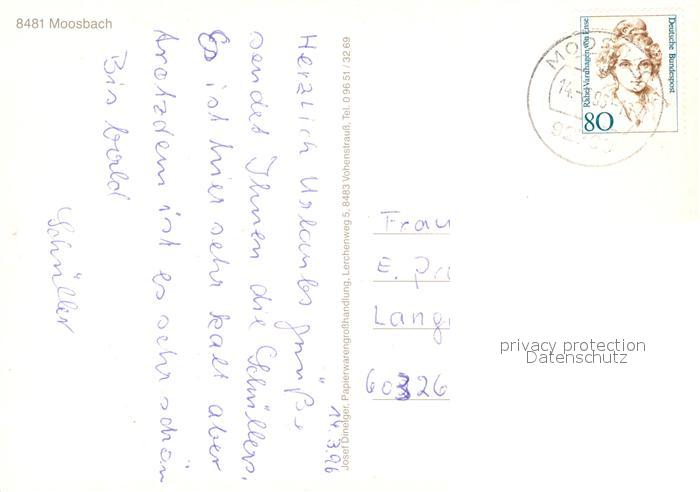 8481 Moosbach
14.3.96
Herzlich Urlaubs grüße
sendet Ihnen die Schüllers.
Es ist hier sehr kalt aber
trotzdem ist es sehr schön
Bis bald
Schüller
Josef Dineiger, Papierwarengroßhandlung, Lerchenweg 5, 8483 Vohenstrauß, Tel. 0 96 51 / 32 69
Deutsche Bundespost
Rahel Varnhagen von Ense
80
MOOS
14.
Frau
E.
Lang
60326
privacy protection
Datenschutz